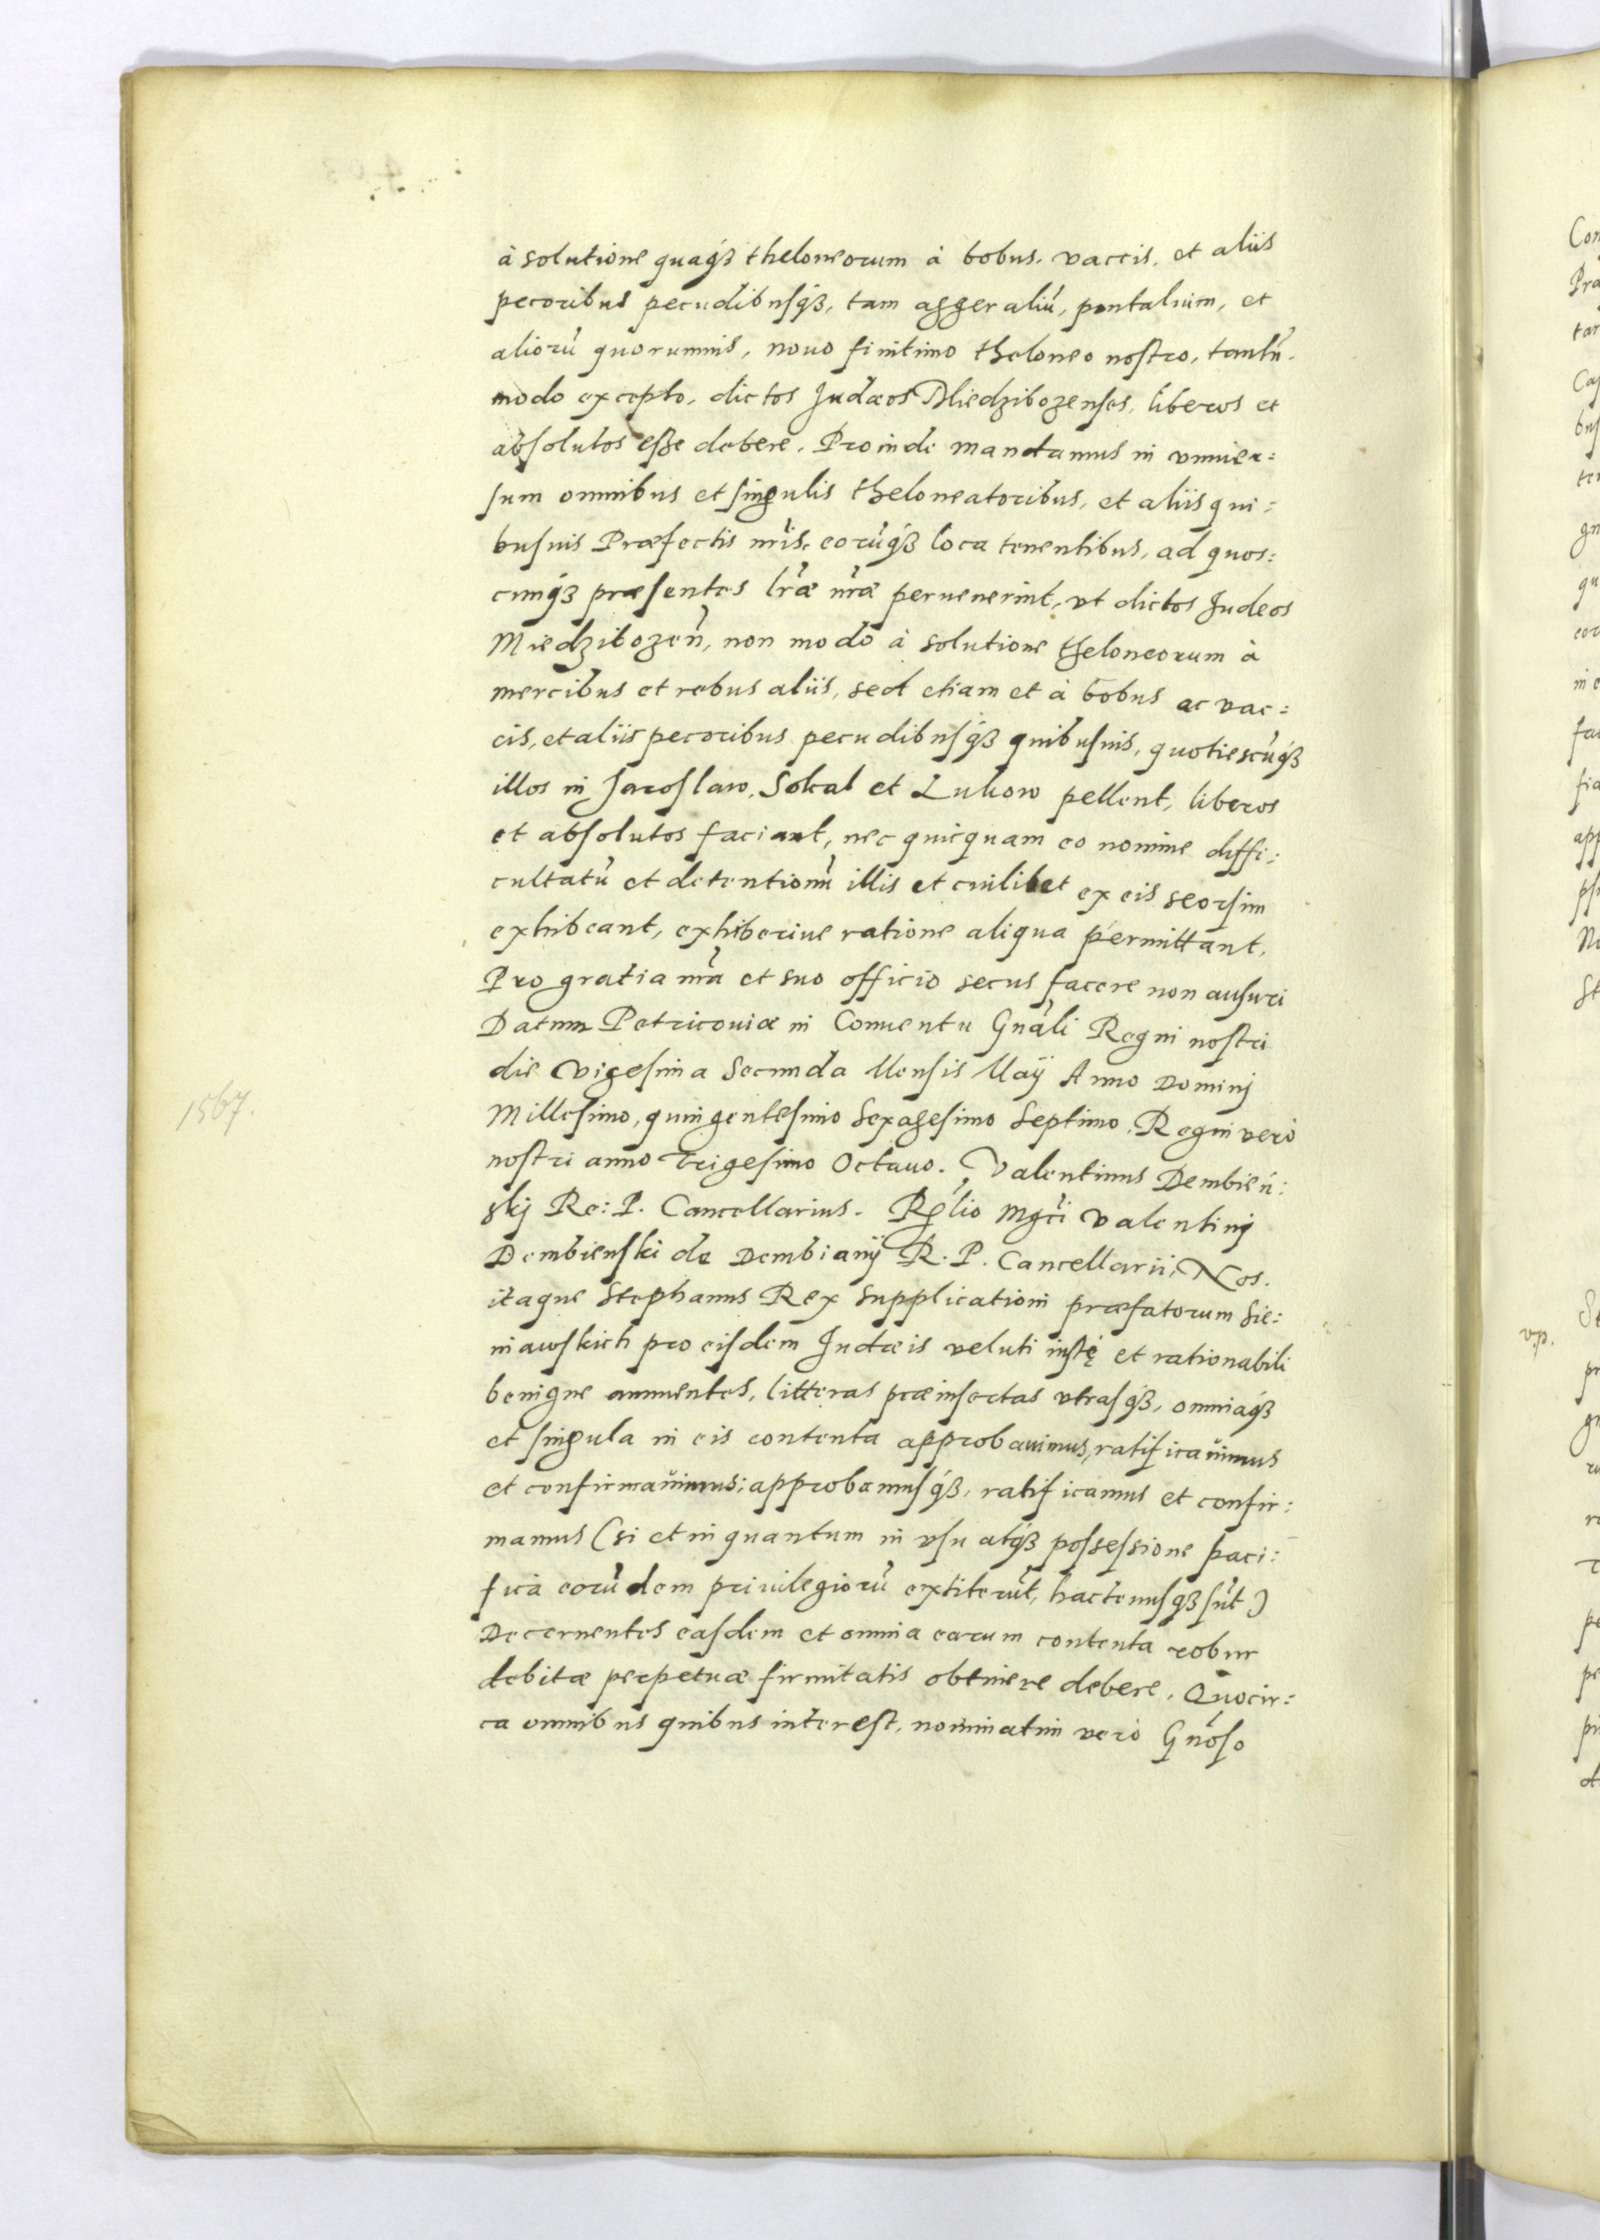 à solutione quaqꝫ theloneorum à bobus, vaccis, et aliis
pecoribus pecudibusqꝫ, tam aggeraliũ, pontalium, et
aliorũ quorumuis, nouo finitimo theloneo nostro, tantũ.
modo excepto, dictos Judæos Miedzibozenses, liberos et
absolutos esse debere. Proinde mandamus in vniuer:
sum omnibus et singulis theloneatoribus, et aliis qui:
busuis Præfectis nr̃is, eorũqꝫ loca tenentibus, ad quos:
cunqꝫ præsentes lr̃æ nr̃æ peruenerint, vt dictos Judeos
Miedzibozen̄, non modo à solutione theloneorum à
mercibus et rebus aliis, sed etiam et à bobus ac vac:
cis, et aliis pecoribus pecudibusqꝫ quibusuis, quotiescũqꝫ
illos in Jaroslaw, Sokal et Lukow pellent, liberos
et absolutos faciant, nec quicquam eo nomine diffi:
cultatũ et detentionũ illis et cuilibet ex eis seorsim
exhibeant, exhiberiue ratione aliqua permittant,
Pro gratia nr̃a et suo officio secus facere non ausuri
Datum Petricouiæ in Conuentu Gnãli Regni nostri
die Vigesima Secunda Mensis Maij Anno Dominj
Millesimo, quingentesimo Sexagesimo Septimo, Regni verò
1567.
nostri anno trigesimo Octauo. Valentinus Dembień:
skj Re: P. Cancellarius. Rel̃io Mgc̃i Valentinj
Dembienski de Dembianij R. P. Cancellarii, Nos.
itaque Stephanus Rex supplicationi præfatorum Sie:
niawskich pro eisdem Judæis veluti iustę et rationabili
benigne annuentes, litteras præinsertas vtrasqꝫ, omniaqꝫ
et singula in eis contenta approbauimus, ratificauimus
et confirmauimus; approbamusqꝫ, ratificamus et confir:
mamus (si et in quantum in vsu atqꝫ possessione paci:
fica eorũdem priuilegiorũ extiterũt, hactenusqꝫ sũt)
Decernentes easdem et omnia earum contenta robur
debitæ perpetuæ firmitatis obtinere debere. Quocir:
ca omnibus quibus interest, nominatim verò Gñoso